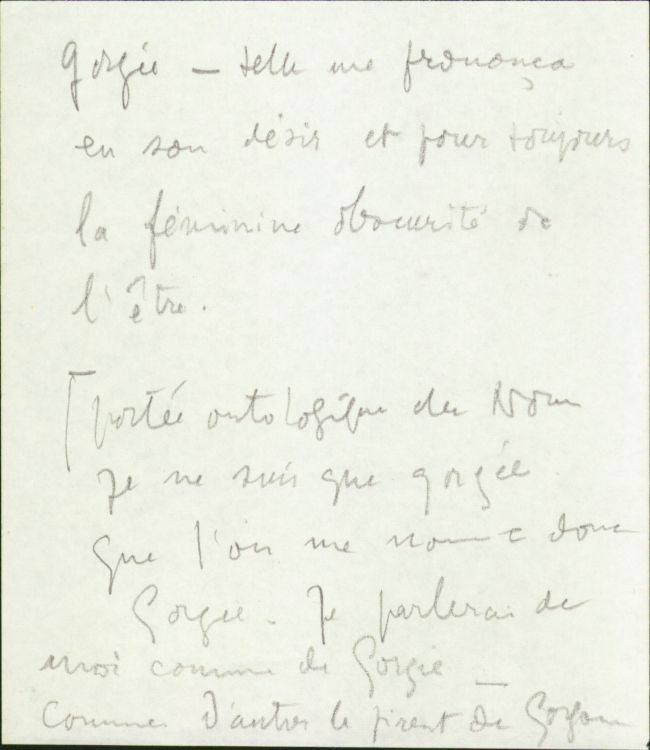 gorgée — telle me prononça
en son désir et pour toujours
la féminine obscurité de
l'être.
[portée ontologique du Nom
Je ne suis que gorgée
que l'on me nomme donc
Gorgée. Je parlerai de
moi comme de Gorgée —
Comme d'autres le firent de